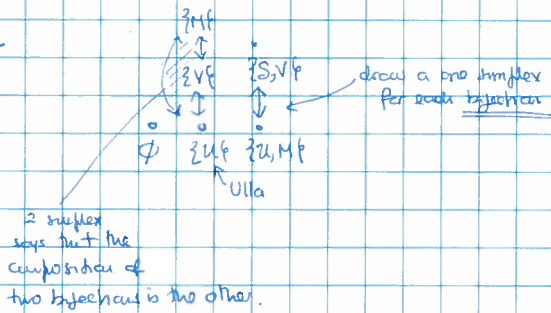 {M}
{V}
{S,V}
draw a one simplex
for each bijection
∅
{U}
{U,M}
Ulla
2 simplex
says that the
composition of
two bijections is the other.